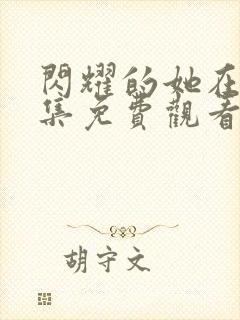 閃耀的她在
集免費觀看
胡守文